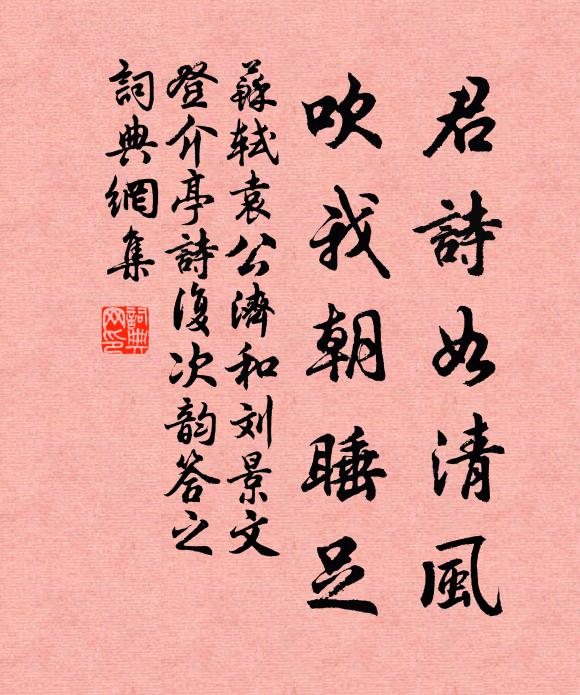 君詩如清風
吹我朝睡足
蘇軾袁公濟和刘景文
登介亭詩復次韵答之
詞典網集
詞典
网印